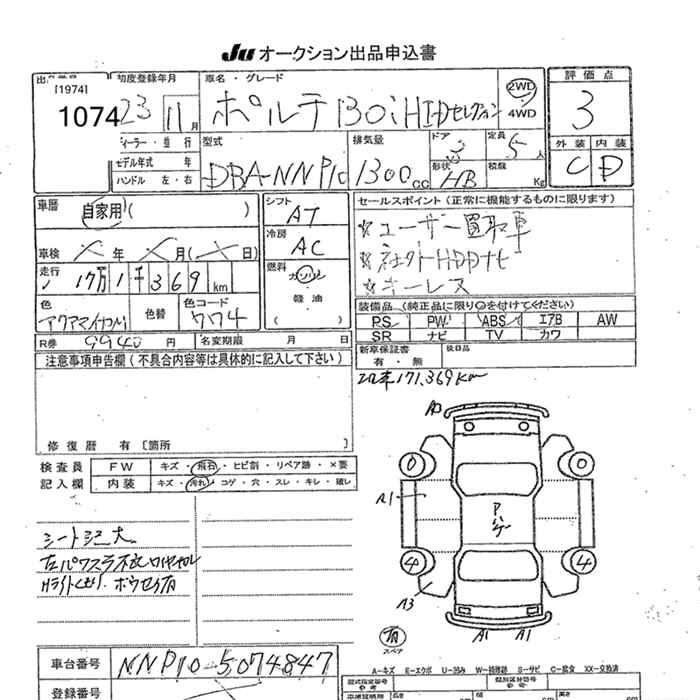 Ju オークション出品申込書
[1974]
1074
初度登録年月
23 11月
車名・グレード
ポルテ 130i HIDセレクション
2WD
4WD
評価点
3
外装 内装
C D
ディーラー・並行
モデル年式 年
ハンドル 左・右
型式
DBA-NNP10
排気量
1300cc
ドア
3
形状
HB
定員
5人
積載
Kg
車歴
自家用( )
シフト
AT
冷房
AC
燃料
ガソリン
軽油
( )
セールスポイント(正常に機能するものに限ります)
☆ユーザー買取車
☆社外HDDナビ
☆キーレス
車検 年 月( 日)
走行
17万1千369km
色
色替
色コード
774
装備品(純正品に限り○を付けてください)
PS PW ABS エアB AW
SR ナビ TV カワ
R券 9940円
名変期限 月 日
新車保証書
有・無
後日品
注意事項申告欄(不具合内容等は具体的に記入して下さい)
171,369km
修復歴 有〔箇所
検査員
記入欄
FW キズ・飛石・ヒビ割・リペア跡・×要
内装 キズ・汚れ・コゲ・穴・スレ・キレ・破レ
シートシミ大
A1
A3
A1 A1
0 0
4 4
有
スペア
車台番号 NNP10-5074847
A-キズ E-エクボ U-凹み W-補修跡 S-サビ C-腐食 XX-交換済
登録番号
型式指定番号
類別区分番号